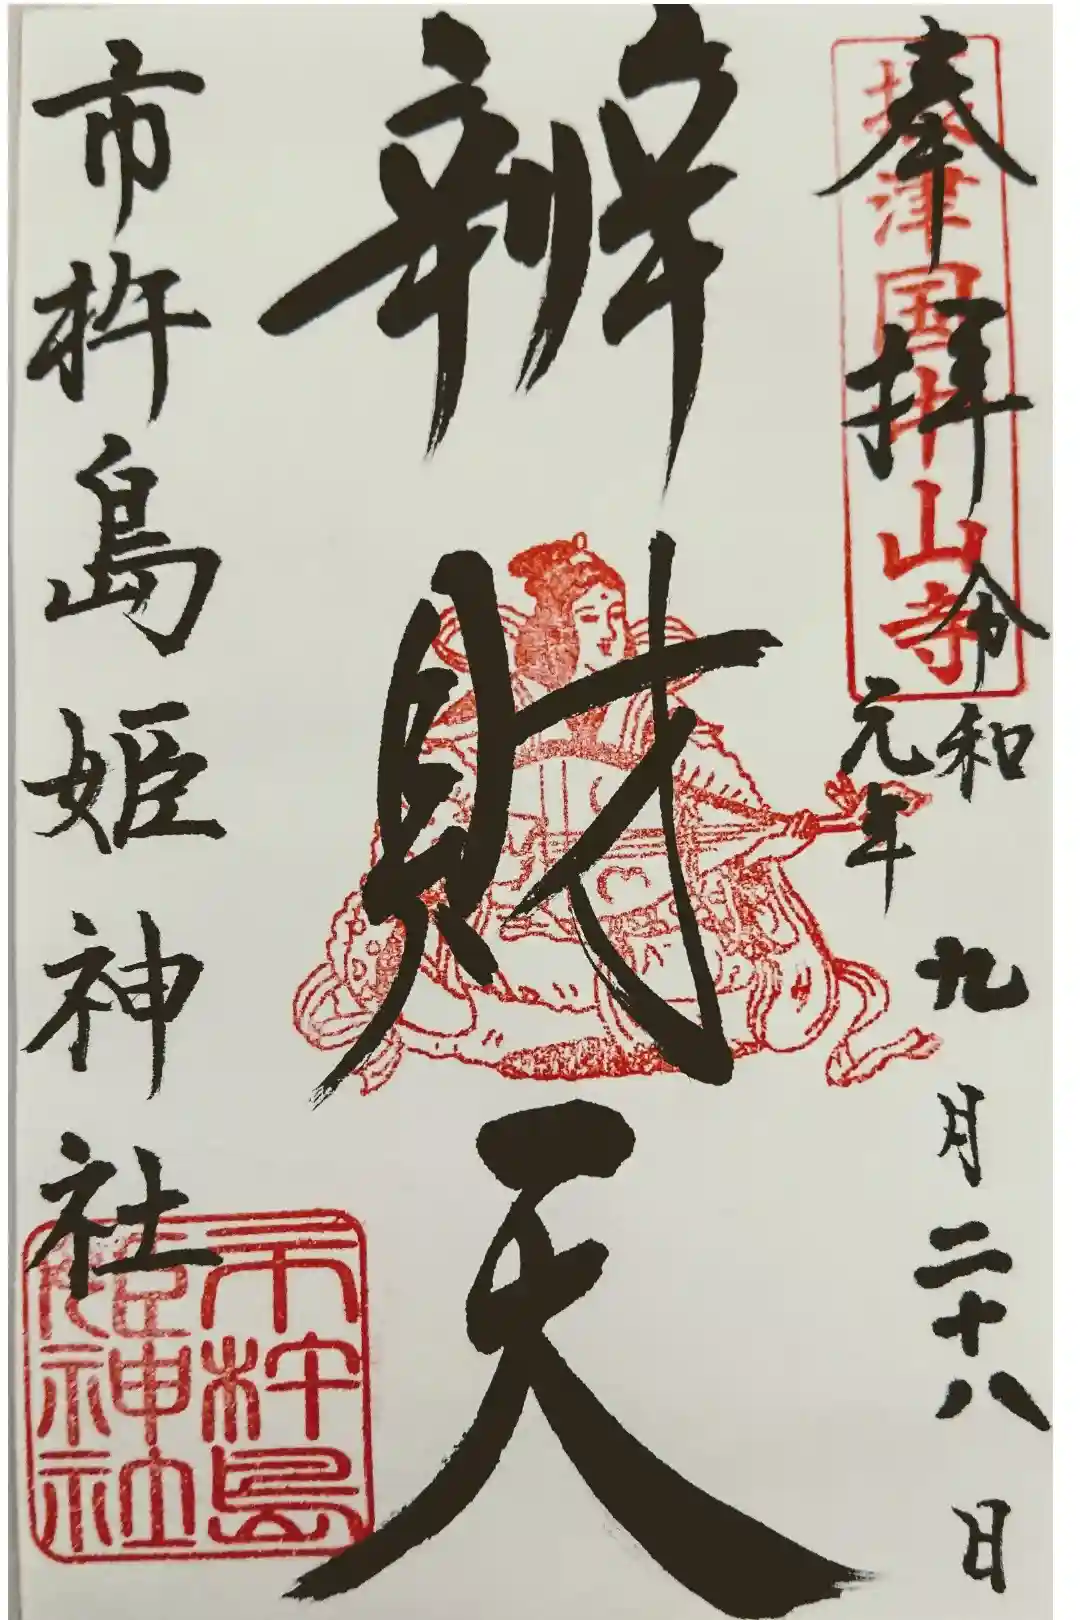 奉拝
摂津国中山寺
令和
元年
九月二十八日
辨財天
市杵島姫神神社
市杵島
姫神社